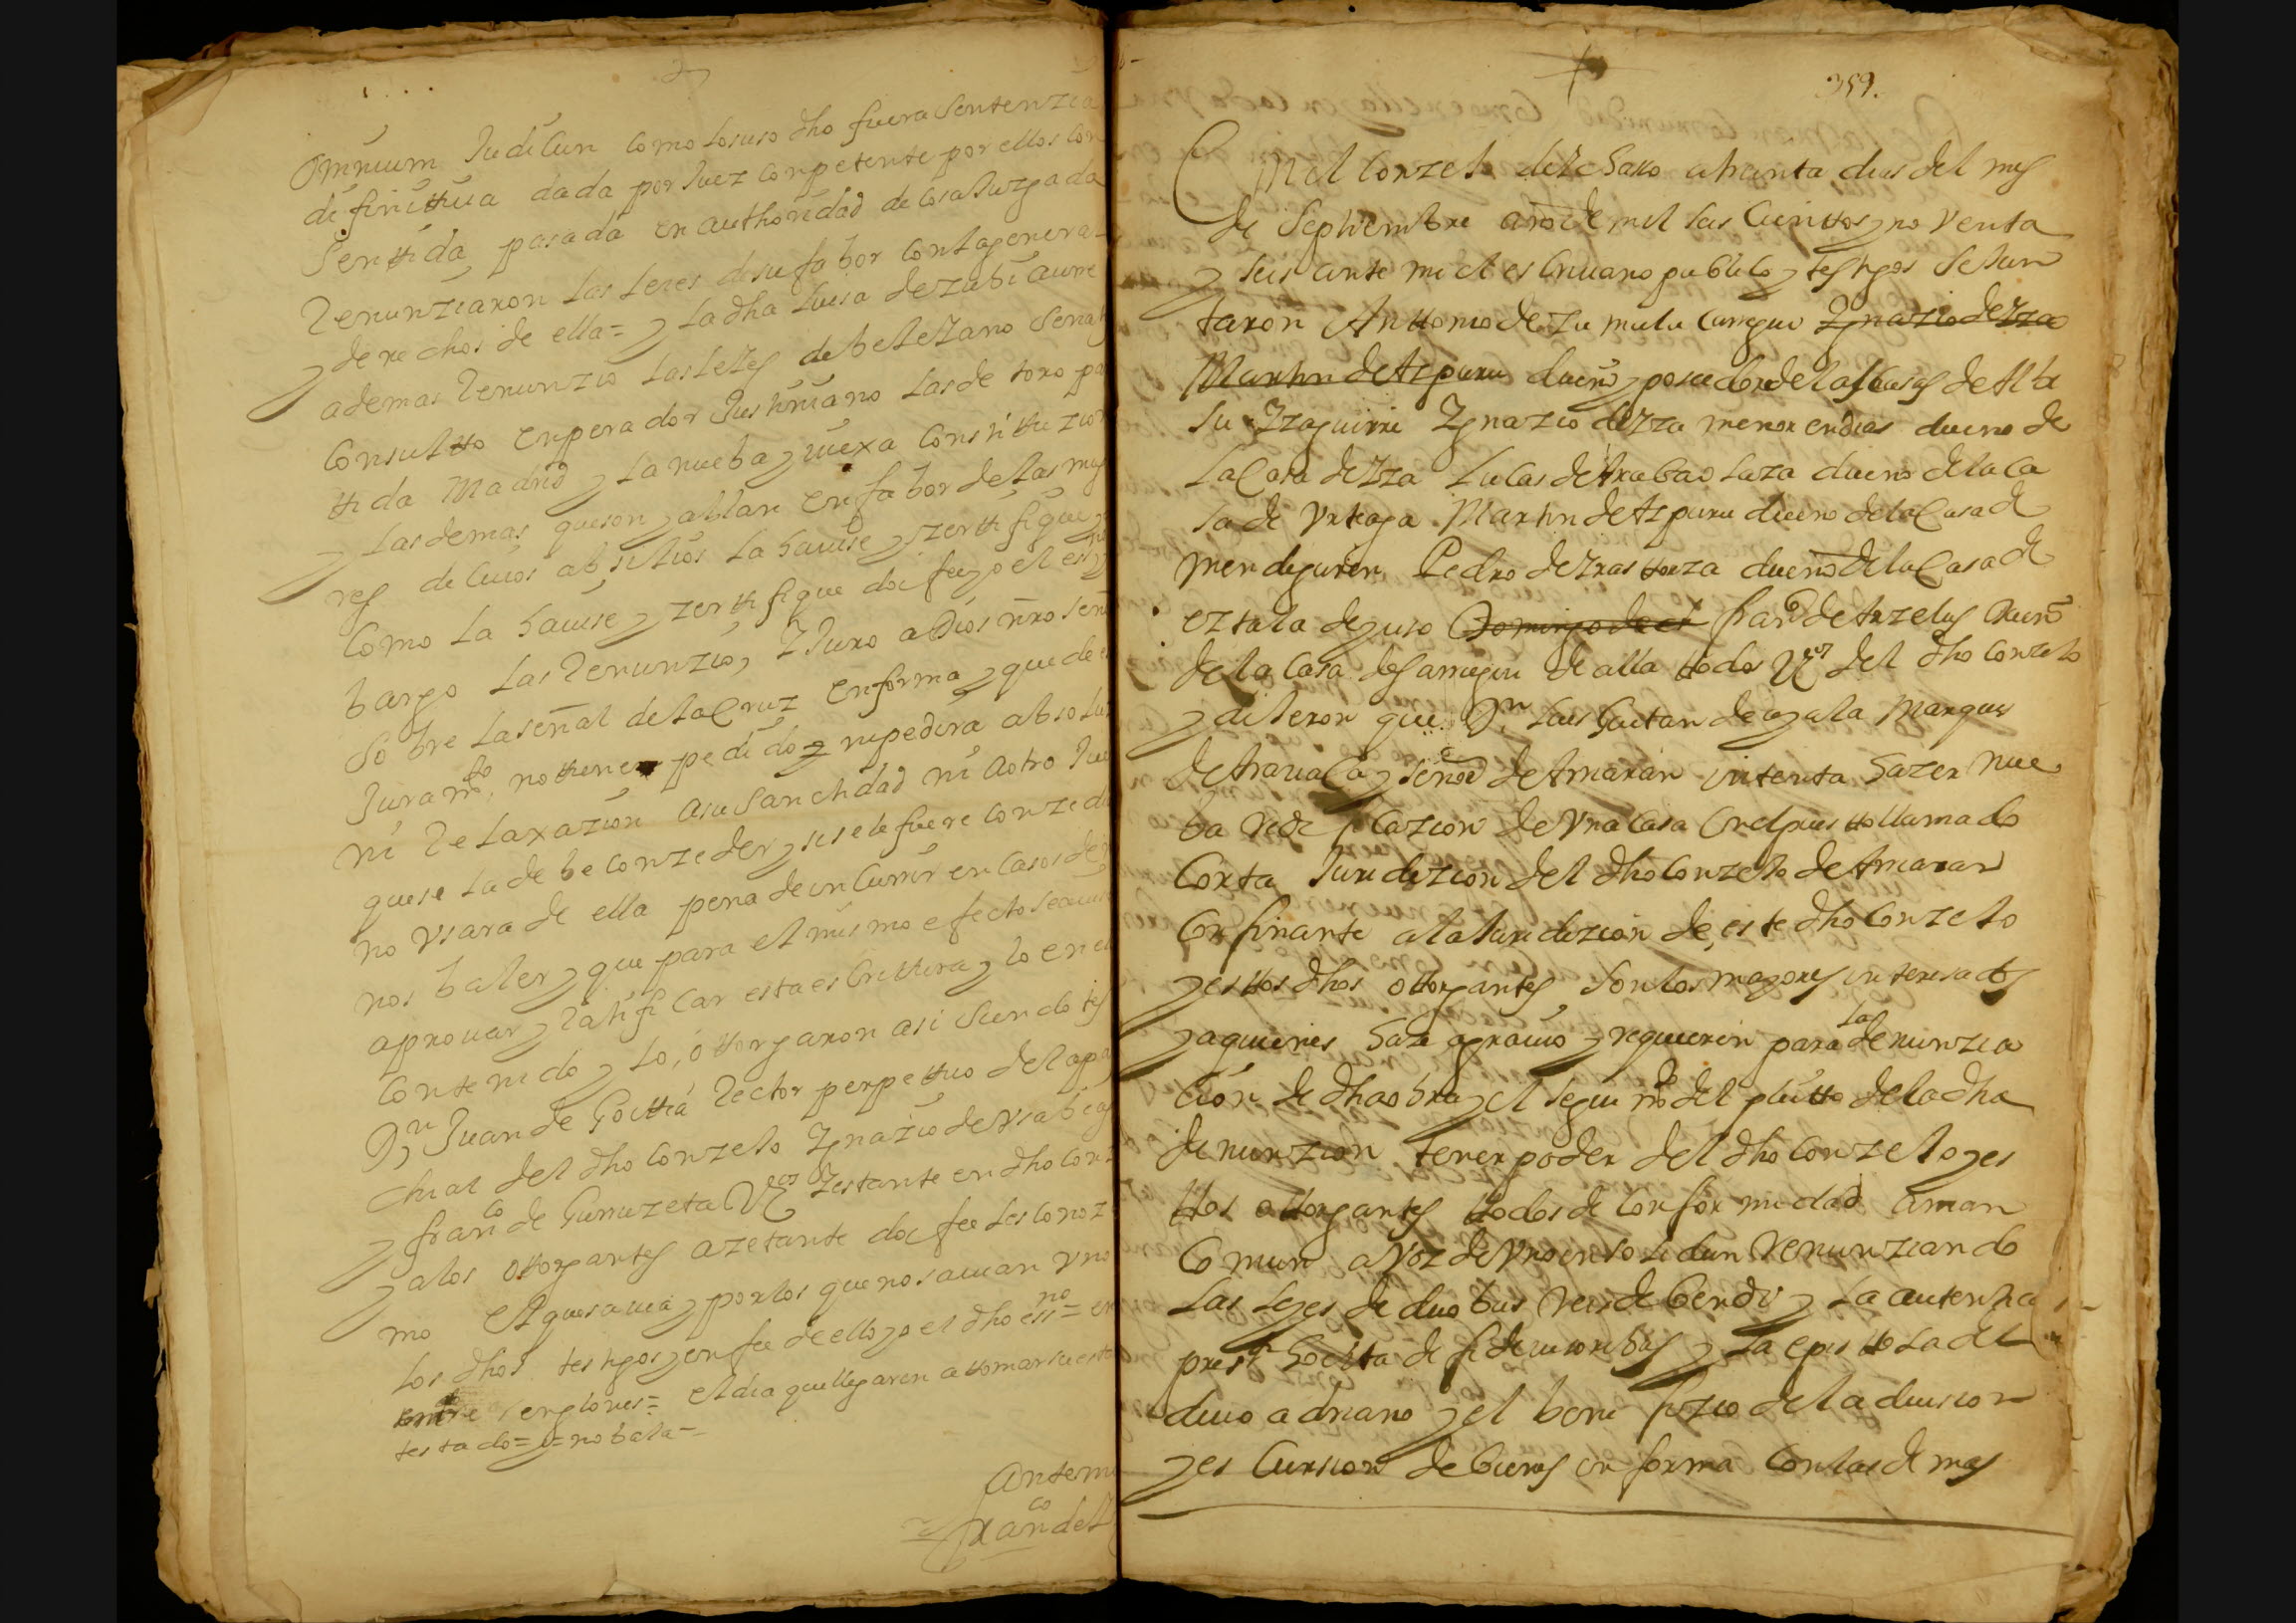 Omnium Judicun como losuso dho fuera sentenzia
difinittiua dada por Juez conpetente por ellos con
senttida pasada en authoridad de cosa Juzgada
Renunziaron las leies desu fabor contagenera
y derechos de ella= y la dha luisa dezubiaurre
ademas Renunzio las leies debeleiano Senat
consultto enperador Justiniano las de toro pa
ttida Madrid y la nueba y viexa constittuzion
y las demas queson y ablan en fabor de las mug
res de cuios absilios la hauise y zerttifique
como la hauise y zerttifique doi fee yo el essno
bargo las Renunzio, y Juro a Dios nro señ
sobre la señal de la Cruz en forma y que de
Juramto nottiene pedido y nipedira absolu
ni Relaxazion asu Santidad ni aotro Jue
que se la debe conzeder y si se le fuere conzedi
no vsara de ella pena de incurrir en casos de
nos baler y que para el mismo efecto seau
aprouar y Ratificar esta escrittura y lo en el
contenido y lo, ottorgaron asi siendo tes
Dn Juan de Goittia Rector perpettuo del apa
chial del dho conzelo Ygnazio de vrabia
y franco de Gurruzeta Vzos y estante en dho con
y alos ottorgantes azetante doi fee les conoz
mo el que sauia y por los que no sauian vno
los dhos testigos y en fee de ello yo el dho essno= en
entre renglones= el dia quellegaren attomar su esta
testado= y= no bala=
Antemi
Franco de
359.
En el Conzelo de Rexsano atreinta dias del mes
de Septiembre año de mil seis cienttos y no venta
y seis ante mi el escriuano publico y testigos se Jun
taron Anttonio de Zumulu Ygnazio de Yza
Martin de Aspuru dueño y posedor de las Casas de Alta
su Yzaguirre Ygnazio de Yza menor en dias dueno de
la Casa de Yza Lucas de Arabaolaza dueno de la ca
sa de Vrteaga Martin de Aspuru dueno de la Casa de
mendiguren Pedro de Yrastorza dueño de la Casa de
eztala de yuso Domingo de franco de Arzelus dueño
de la casa de de alla ttodos Vzos del dho conzelo
y dileron que Dn Luis Gaitan de ayala Marques
de Arauaca y señor de Amarán intenta hazer nue
ba Redificazion de vna Casa en el puestto llamado
Corta Juridizion del dho Conzelo de Amaran
Confinante ala Juridizion de este dho Conzelo
y esttos dhos ottorgantes son los mayores interesados
y aquienes haze agrauio y requieren para la denunzia
cion de dha obra y el seguimto del pleitto de la dha
denunzion tener poder del dho Conzelo y es
ttos ottorgantes ttodos de conformidad aman
Comun a voz de vno insolidun Renunziando
Las leyes de duobus Reis debendi y la autentica
presente hoc ita de fideiusoribus y la epistola del
diuo adriano y el benefizio de la diuision
y escursion de bienes en forma con las demas